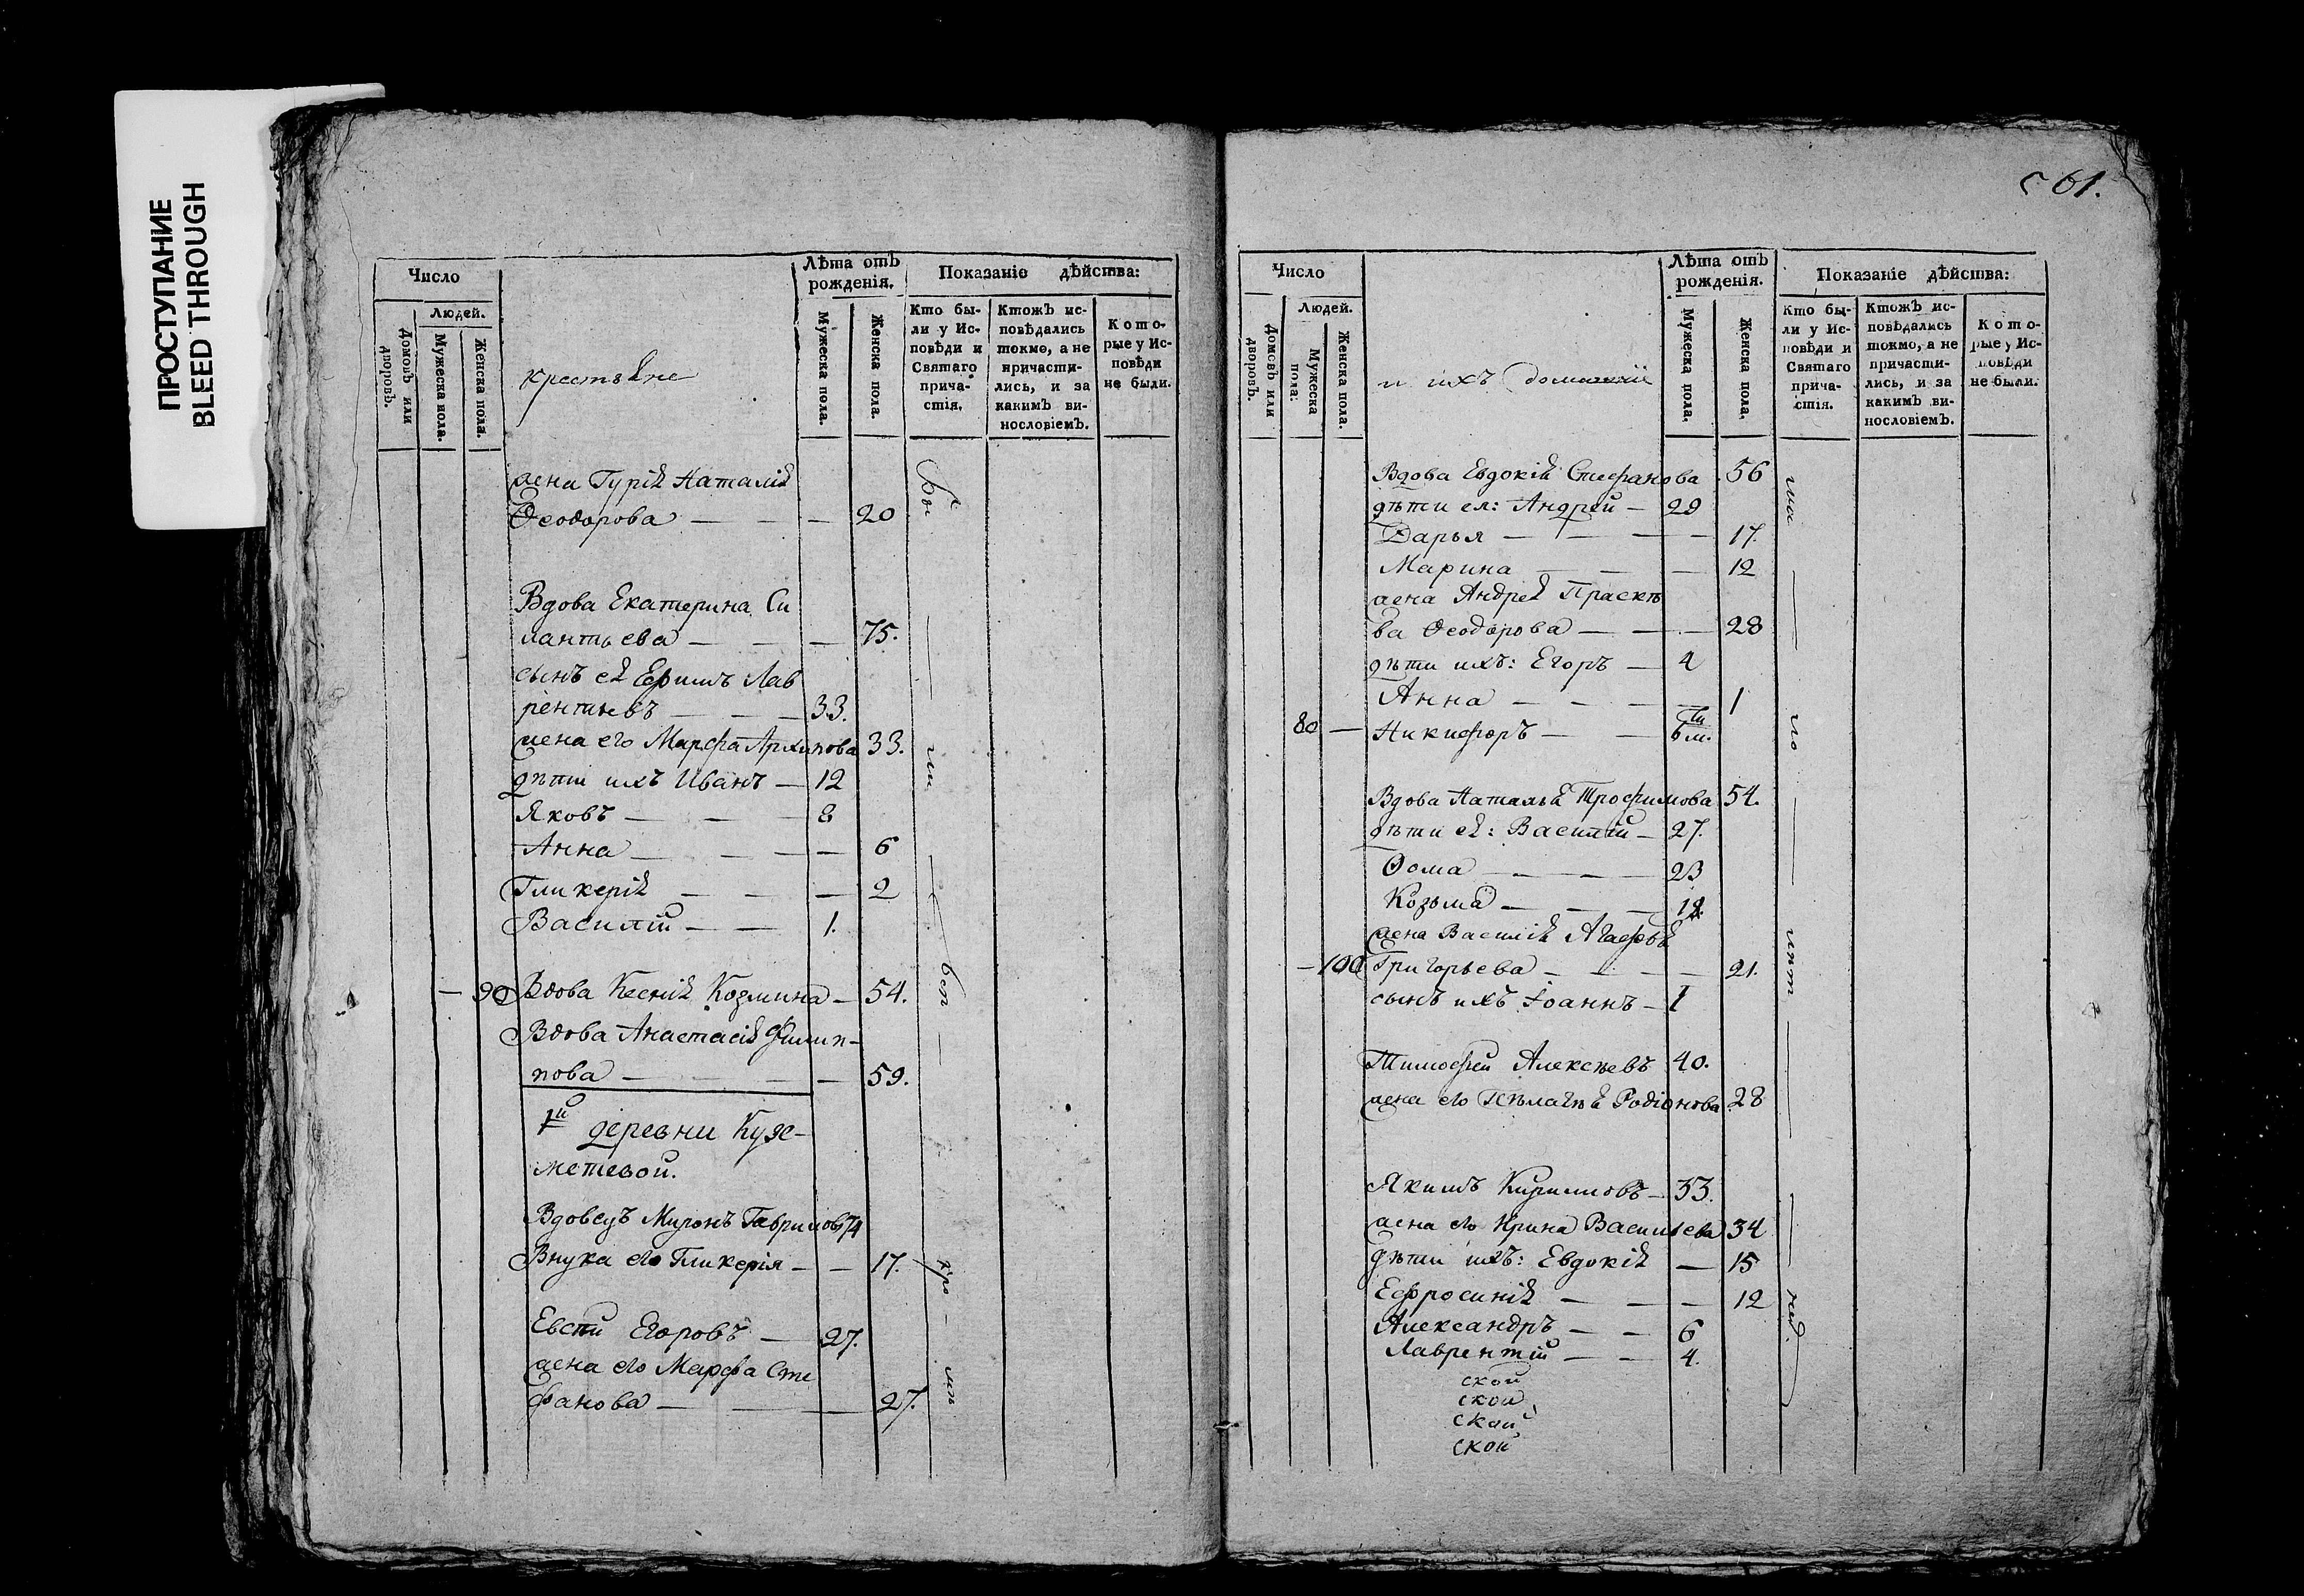 ПРОСТУПАНИЕ
BLEED THROUGH
Число
Людей.
Домовъ или дворовъ.
Мужеска пола.
Женска пола.
крестьяне
Лѣта отъ рожденія.
Мужеска пола.
Женска пола.
Показаніе дѣйства:
Кто бы-
ли у Ис-
повѣди и
Святаго
прича-
стія.
Ктожъ ис-
повѣдались
токмо, а не
причасти-
лись, и за
какимъ ви-
нословіемъ.
Кото-
рые у Ис-
повѣди
не были.
жена Гурія Наталія
Ѳеодорова — — — 20
Вдова Екатерина Си
лантьева — — — 75.
сынъ ея Ефимъ Лав
рентьевъ — — — 33.
жена его Марфа Архипова 33.
дѣти ихъ Иванъ — 12
Яковъ — — — 8
Анна — — — — 6
Гликерія — — — 2
Василій — — 1.
— 90 Вдова Ксенія Козмина — 54.
Вдова Анастасія Филип-
пова — — — — 59.
деревни Куже-
метевой.
Вдовецъ Миронъ Гавриловъ 74
Внука его Гликерія — — 17.
Евсти Егоровъ — 27.
жена его Марфа Сте
фанова — — — 27.
61.
Число
Людей.
Домовъ или дворовъ.
Мужеска пола:
Женска пола.
и ихъ домашніе
Лѣта отъ рожденія.
Мужеска пола.
Женска пола.
Показаніе дѣйства:
Кто бы-
ли у Ис-
повѣди и
Святаго
прича-
стія.
Ктожъ ис-
повѣдались
токмо, а не
причасти-
лись, и за
какимъ ви-
нословіемъ.
Кото-
рые у Ис-
повѣди
не были.
Вдова Евдокія Стефанова 56
дѣти ея: Андрей — 29
Дарья — — — — 17.
Марина — — — 12
жена Андрея Праскѣ
ва Ѳеодорова — — — 28
дѣти ихъ: Егоръ — 4
Анна — — — — 1
80 — Никифоръ — — 6 м.
Вдова Наталья Трофимова 54.
дѣти ея: Василій — 27.
Ѳома — — — 23
Козьма — — —
жена Василія Агафья
— 100 Григорьева — — — 21.
сынъ ихъ Іоаннъ — 1
Тимофей Алексѣевъ 40.
жена его Пелагѣя Родіонова 28
Якимъ Кириловъ — 33.
жена его Ирина Васильева 34
дѣти ихъ: Евдокія — 15
Ефросинія — — — 12
Александръ — — 6
Лаврентій — — 4.
ской
ской
ской
ской